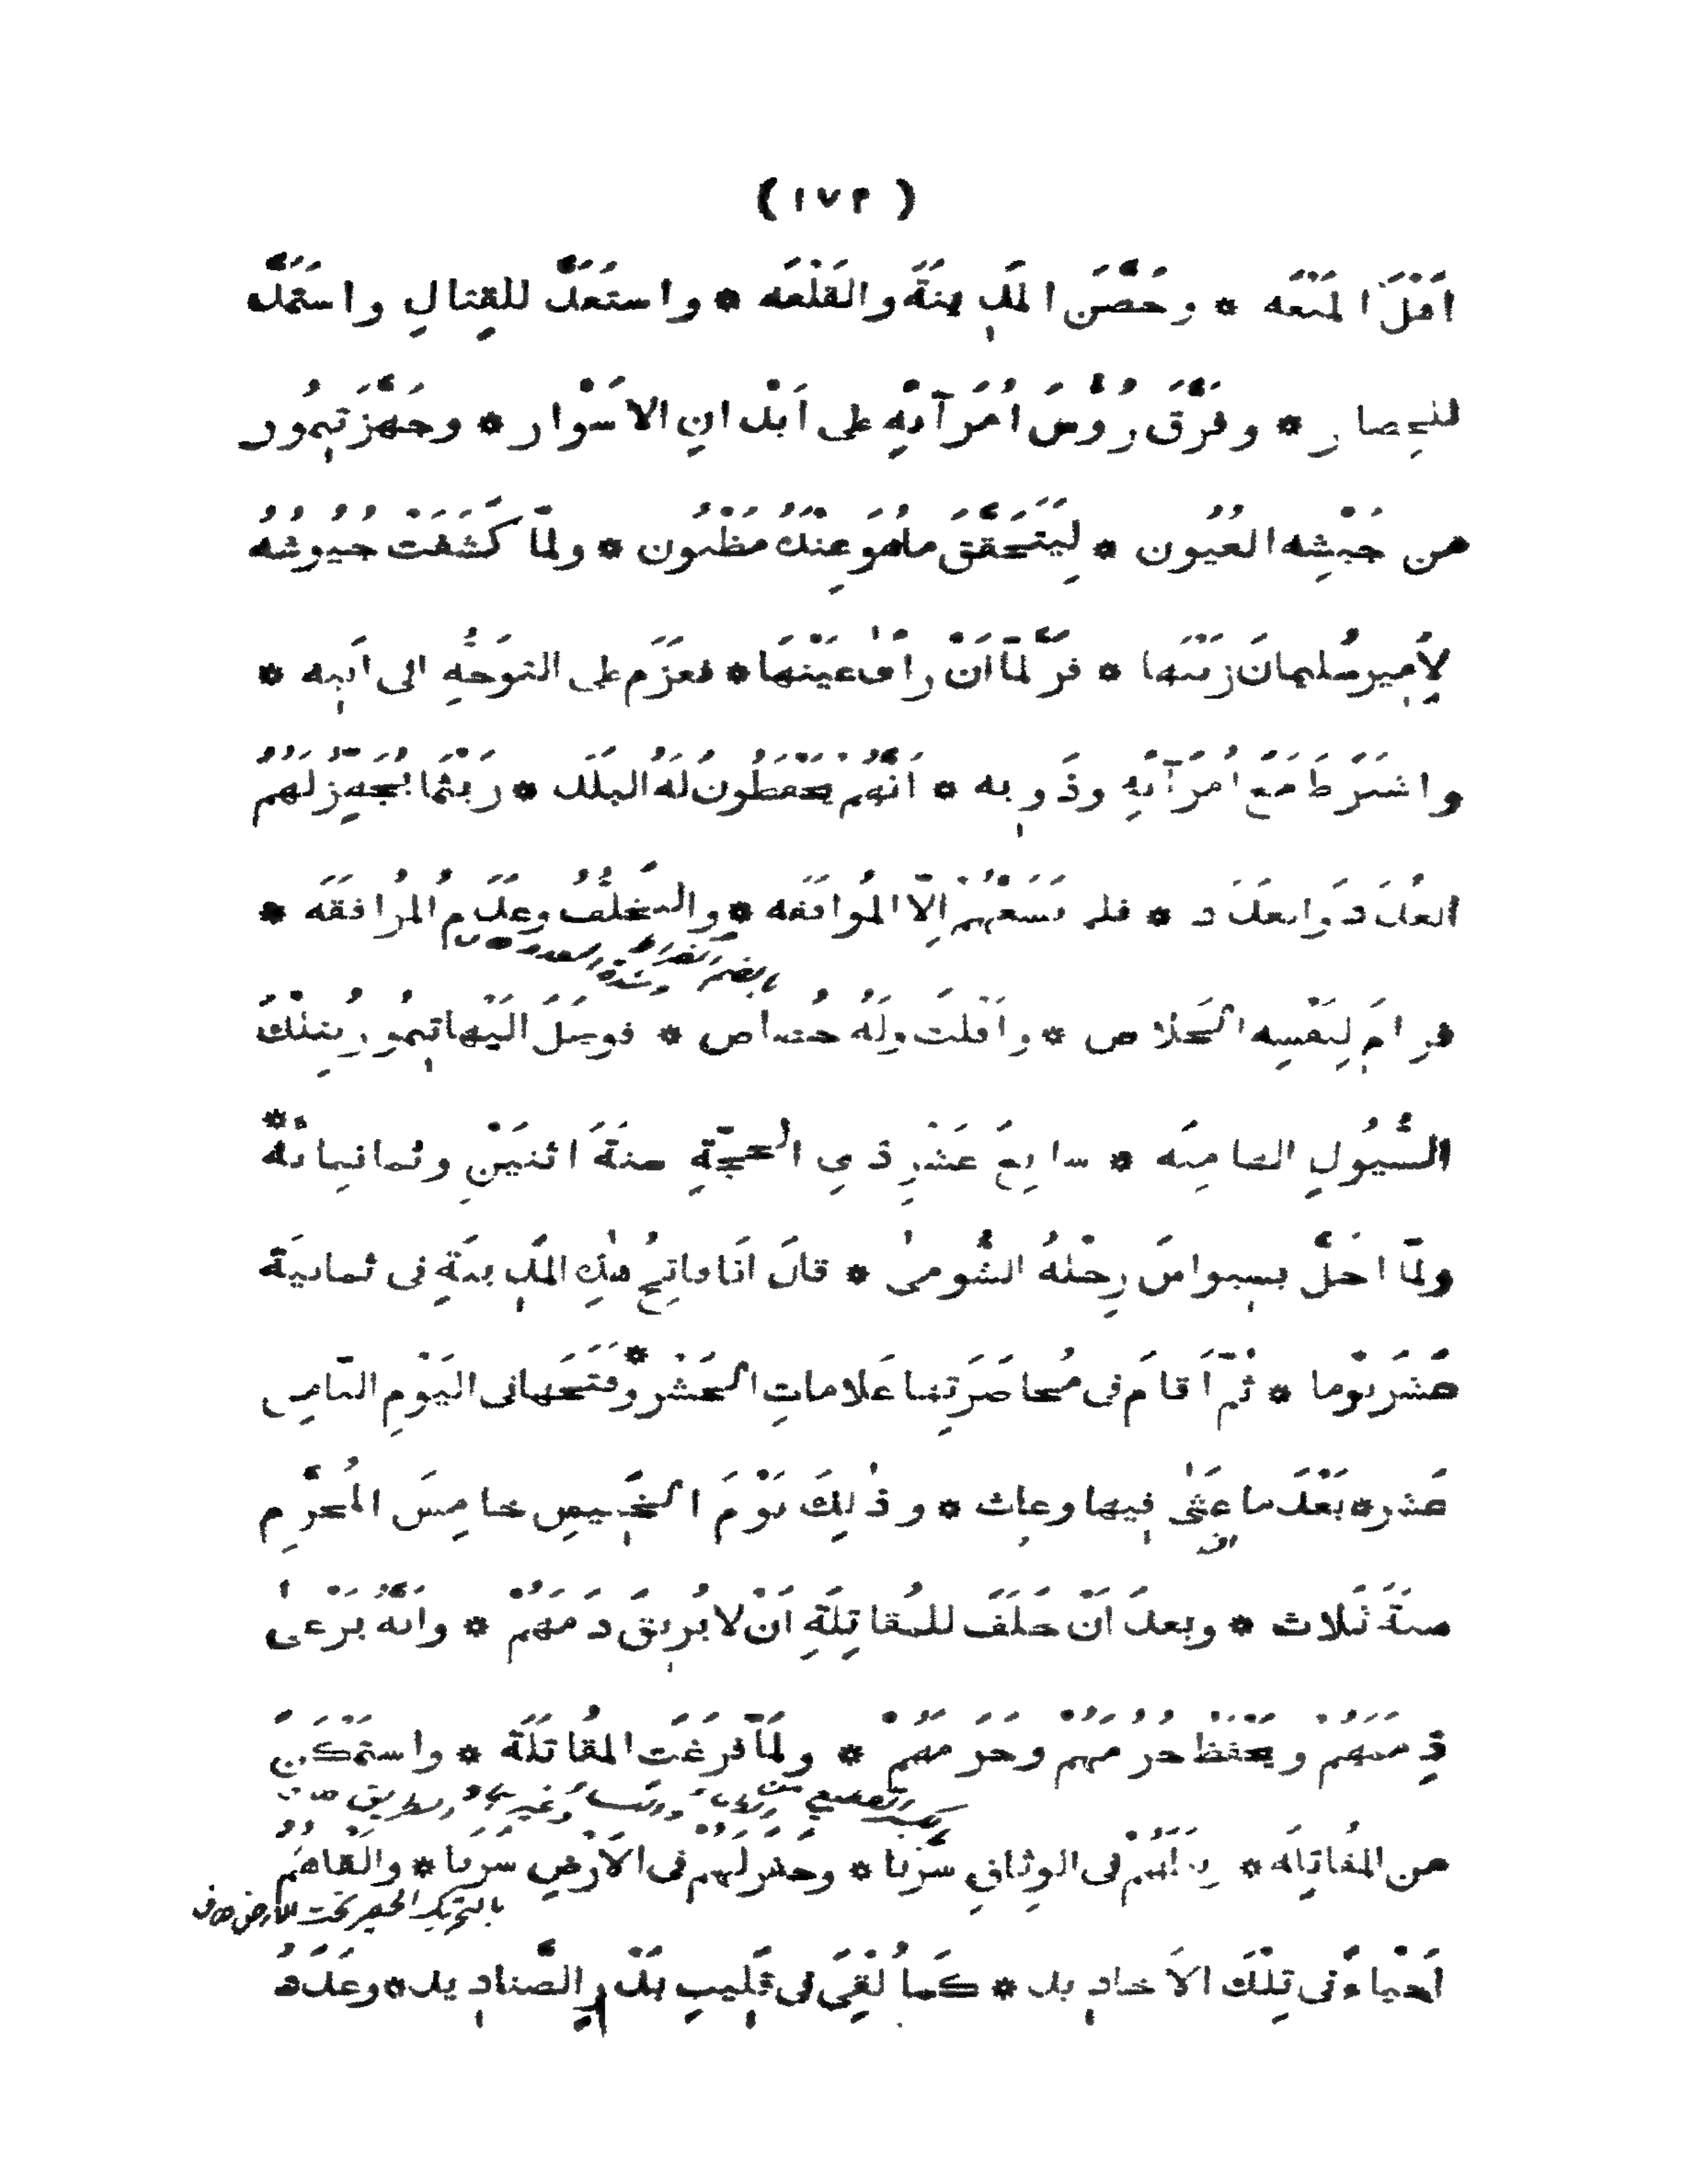 ( ١٧٢ )
اَهْلَ المَنَعَه * وحَصَّنَ المَدِينَةَ والقَلْعَه * واستَعَدَّ للقِتالِ واستَمَدَّ
للحِصار * وفَرَّقَ رُؤُسَ اُمَرَآئِهِ على اَبْدانِ الاَسْوار * وجَهَّزَ تِيمُور
من جَيْشِه العُيُون * لِيَتَحَقَّقَ ما هُوَ عِنْدَهُ مَظْنُون * ولمّا كَشَفَتْ جيوشُهُ
لِاَمِير سُلَيمانَ زَيْنَها * فَرَّ لمّا اَنْ رأى عَيْنَها * فعَزَم على التوَجُّهِ الى اَبِيه *
واشتَرَطَ مَعَ اُمَرَآئِهِ وذَوِيه * اَنَّهُمْ يَحْفَظُونَ لَهُ البلَد * رَيْثَما يُجَهِّزُ لَهُمُ
العُدَدَ وَالعَدَد * فلم تَسَعْهُمْ اِلّا المُوافَقَه * والتَخَلُّفُ وعَدَمُ المُرافَقَه *
فرامَ لِنَفْسِه الخَلاص * واَفْلَتَ ولَهُ حُصاص * فوصَلَ اليَها تِيمُور بتِلْكَ
السُّيُولِ الهامِيَه * سابِعَ عَشْرِ ذى الحجّةِ سنَةَ اثنَيْنِ وثمانمائة *
ولمّا احَلَّ بسِيواسَ رِجْلَهُ الشُّومى * قالَ اَنا فاتِحُ هٰذِهِ المَدِينَةِ فى ثمانيَةَ
عَشَرَ يَوْما * ثُمّ اَقامَ فى مُحاصَرَتِها عَلاماتِ الحَشْر * وفتَحَها فى اليَوْمِ الثامِن
عشر * بَعْدَ ما عَثٰى فيها وعاث * وذٰلِكَ يَوْمَ الخَمِيسِ خامِسَ المُحَرَّم
سنَةَ ثَلاث * وبعدَ اَنْ حَلَفَ للمُقاتِلَةِ اَنْ لا يُرِيقَ دَمَهُمْ * وانَّهُ يَرْعىٰ
ذِمَمَهُمْ ويَحْفَظُ حُرُمَهُمْ وحَرَمَهُمْ * ولَمّا فَرَغَتِ المُقاتَلَة * واستَمْكَنَ
من المُقاتِلَه * رَبَطَهُمْ فى الوِثاقِ سَرْبا * وحفَرَ لَهُمْ فى الاَرْضِ سَرَبا * واَلْقاهُمْ
بالتحريك الحفير تحت الارض
اَحْياءً فى تِلْكَ الاَخادِيد * كَما اُلْقِىَ فى قَلِيبِ بَدْرٍ الصَّنادِيد * وعَدَدُ